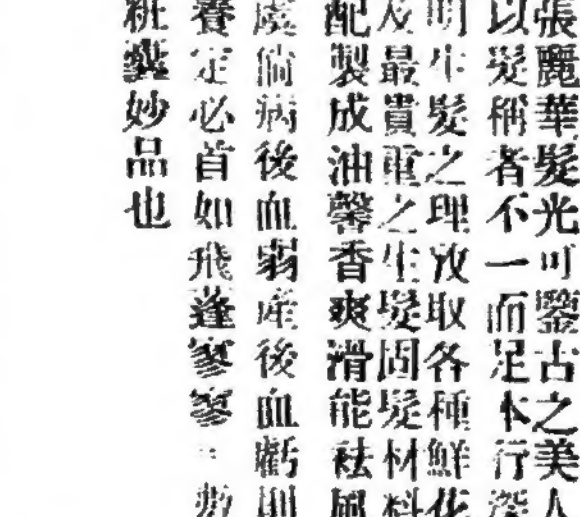 張麗華髮光可鑒古之美人
以髮稱者不一而足本行深
明生髮之理故取各種鮮花
及最貴重之生髮固髮材料
配製成油馨香爽滑能祛風
虔倘病後血弱產後血虧則
養定必首如飛蓬寥寥
妙品也